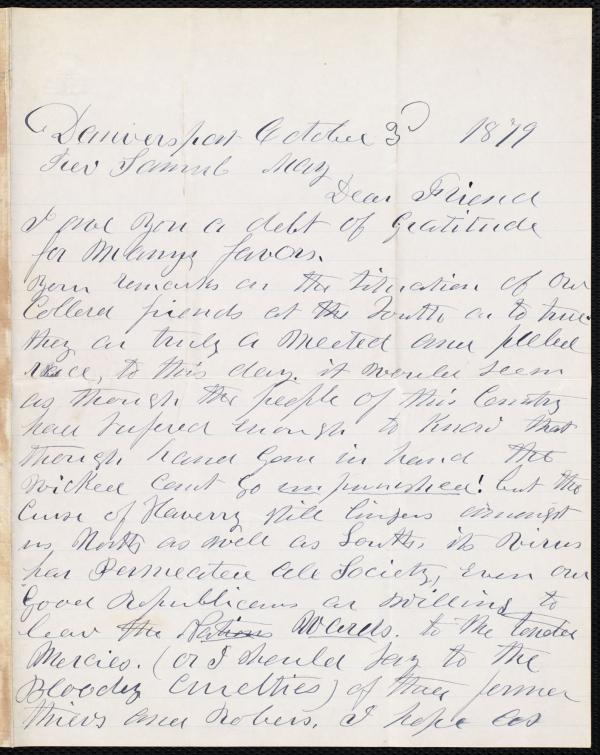 Danversport October 3 1879
Rev Samuel May
Dear Friend
I owe You a debt of Gratitude
for Manny favors.
Your remarks on the Situation of our
Collerd friends at the South ar to true
they ar truly a Meeted and pealed
race, to this day. it would Seem
as though the people of this Country
had Sufered enough to know that
though hand Goin in hand the
wicked Cant Go unpunished! but the
Curse of Slaverry still lingers amongst
us North as well as South, its Virus
has Permeated all Society, even our
Good Republicans ar willing to
leav the Nations Wards. to the tender
Mercies. (or I should say to the
Bloody Cruelties) of thear former
thievs and Robers. I hope as